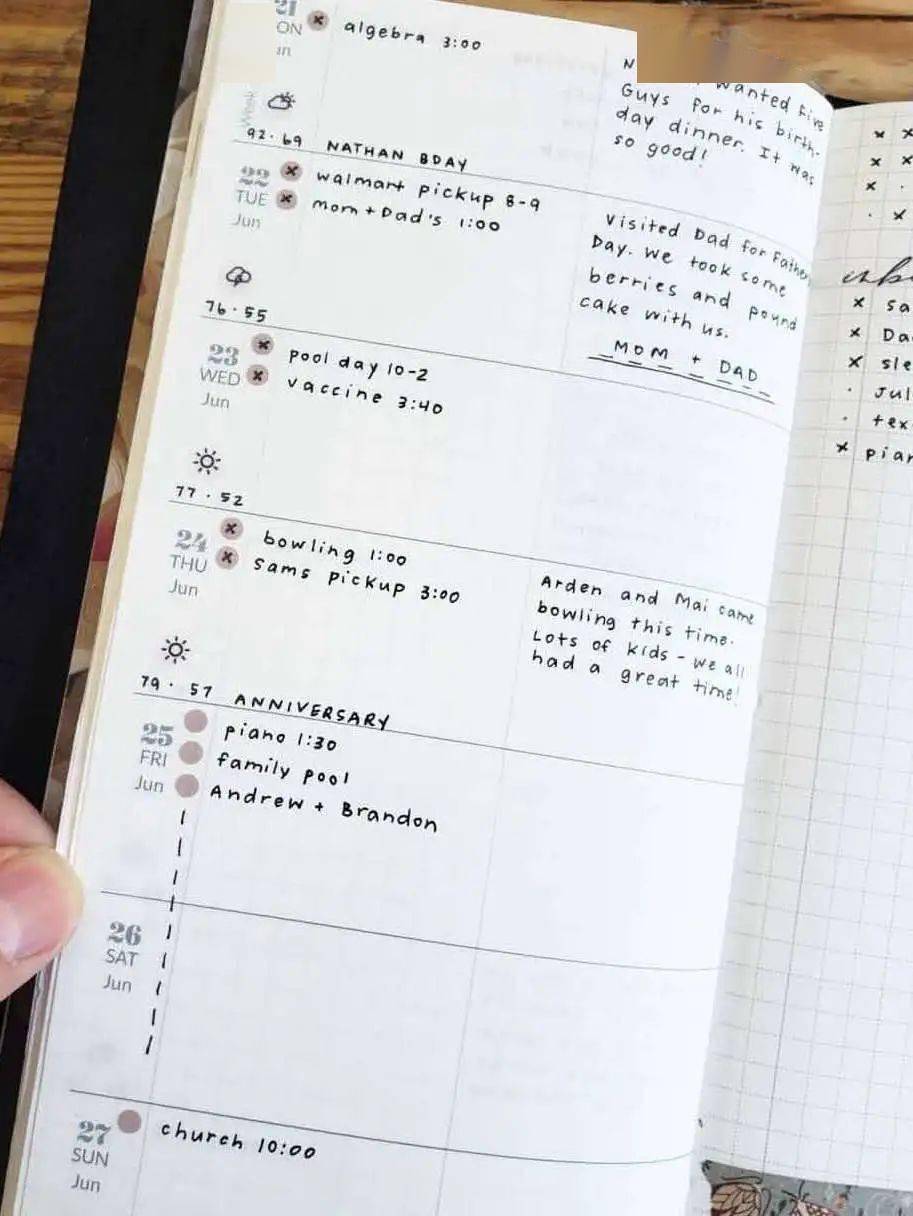 21
ON
algebra 3:00
wanted Five
Guys for his birth-
day dinner. It was
so good!
Week
92·69 NATHAN BDAY
22
TUE
Jun
walmart pickup 8-9
mom+Dad's 1:00
Visited Dad for Father
Day. We took some
berries and pound
cake with us.
MOM + DAD
76·55
23
WED
Jun
pool day 10-2
vaccine 3:40
77·52
24
THU
Jun
bowling 1:00
sams pickup 3:00
Arden and Mai came
bowling this time.
Lots of kids - we all
had a great time!
79·57 ANNIVERSARY
25
FRI
Jun
piano 1:30
family pool
Andrew + Brandon
26
SAT
Jun
27
SUN
Jun
church 10:00
x sa
x Da
x sle
· Jul
· tex
x pian